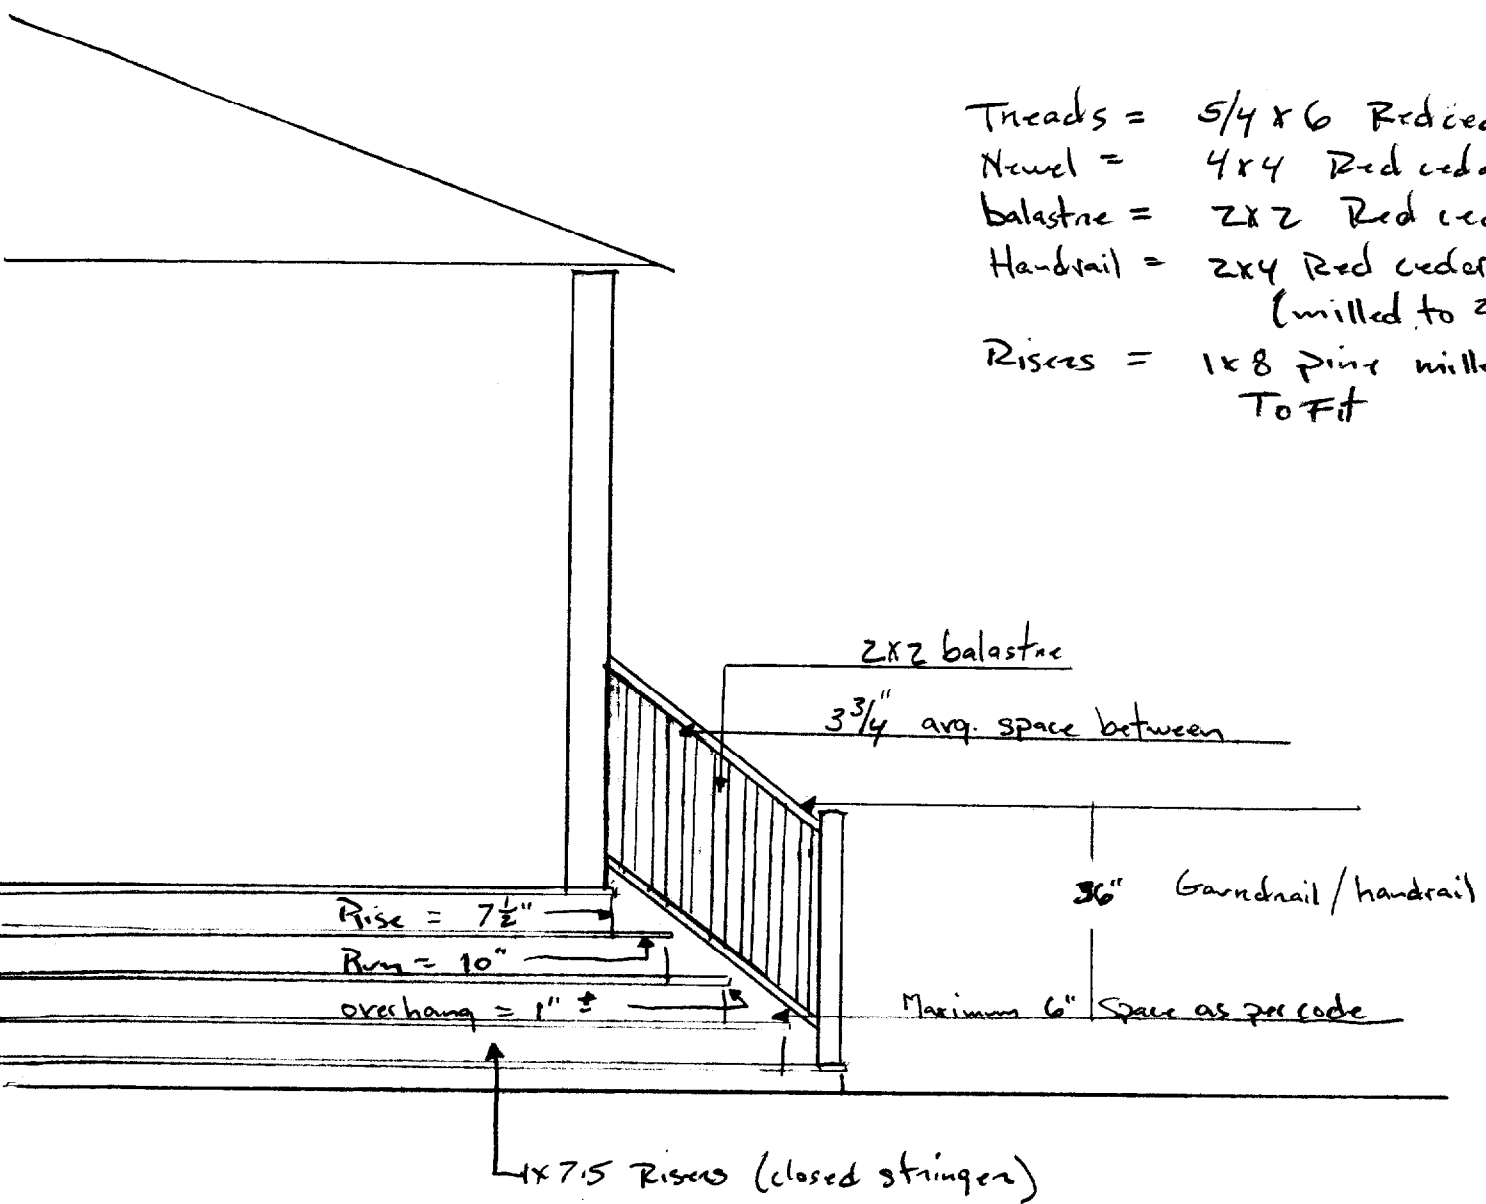 Treads = 5/4 x 6 Red ced
Newel = 4x4 Red ceda
balastre = 2x2 Red ce
Handrail = 2x4 Red cedar
(milled to 2
Risers = 1x8 pine mill
To Fit
2x2 balastre
3 3/4" avg. space between
36" Gaurdrail / handrail
Rise = 7 1/2"
Run = 10"
overhang = 1" ±
Maximum 6" Space as per code
1x7.5 Risers (closed stringer)